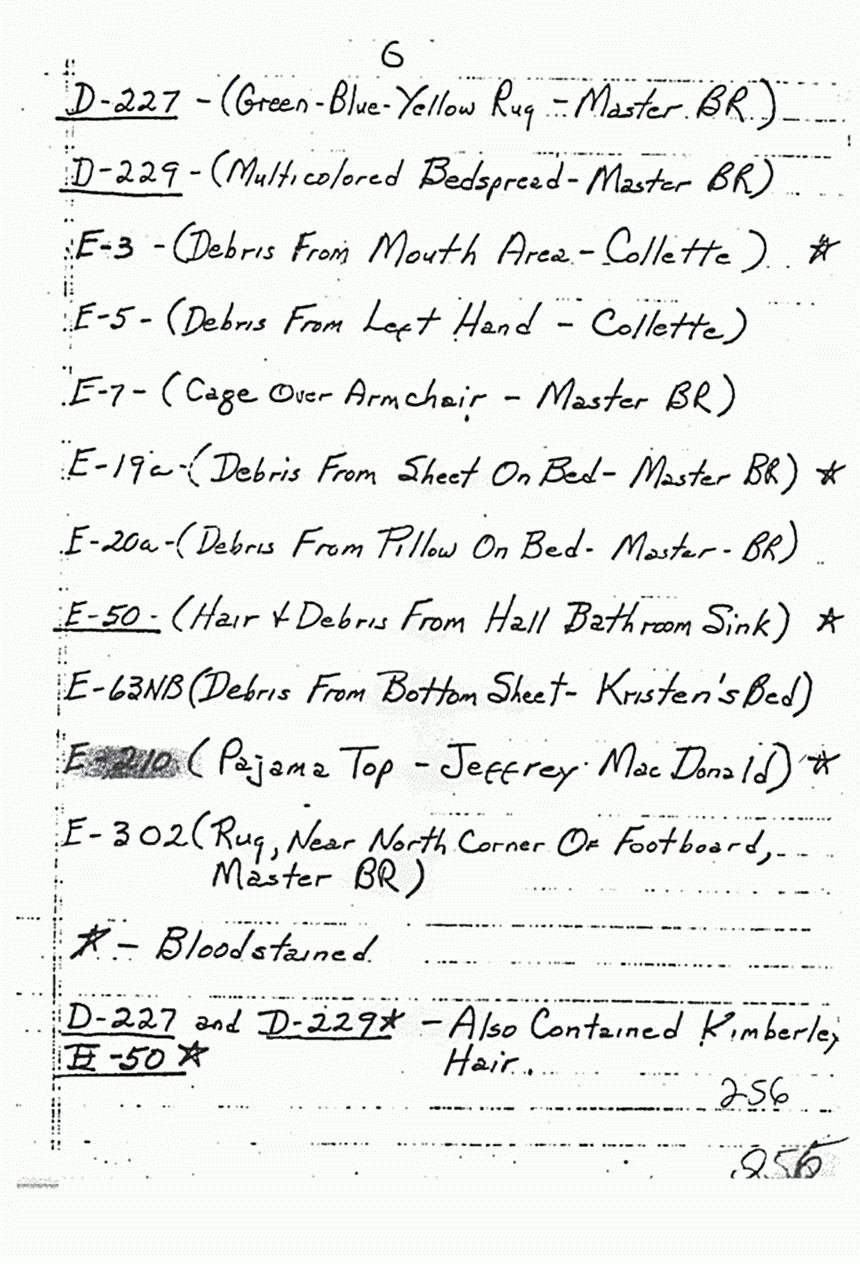 6
D-227 - (Green-Blue-Yellow Rug - Master BR)
D-229 - (Multicolored Bedspread - Master BR)
E-3 - (Debris From Mouth Area - Collette) ☆
E-5 - (Debris From Left Hand - Collette)
E-7 - (Cage Over Armchair - Master BR)
E-19a - (Debris From Sheet On Bed - Master BR) ☆
E-20a - (Debris From Pillow On Bed - Master - BR)
E-50 - (Hair & Debris From Hall Bathroom Sink) ☆
E-63NB (Debris From Bottom Sheet - Kristen's Bed)
E-210 (Pajama Top - Jeffrey MacDonald) ☆
E-302 (Rug, Near North Corner Of Footboard,
Master BR)
☆ - Bloodstained
D-227 and D-229☆ - Also Contained Kimberley
E-50 ☆ Hair.
256
256